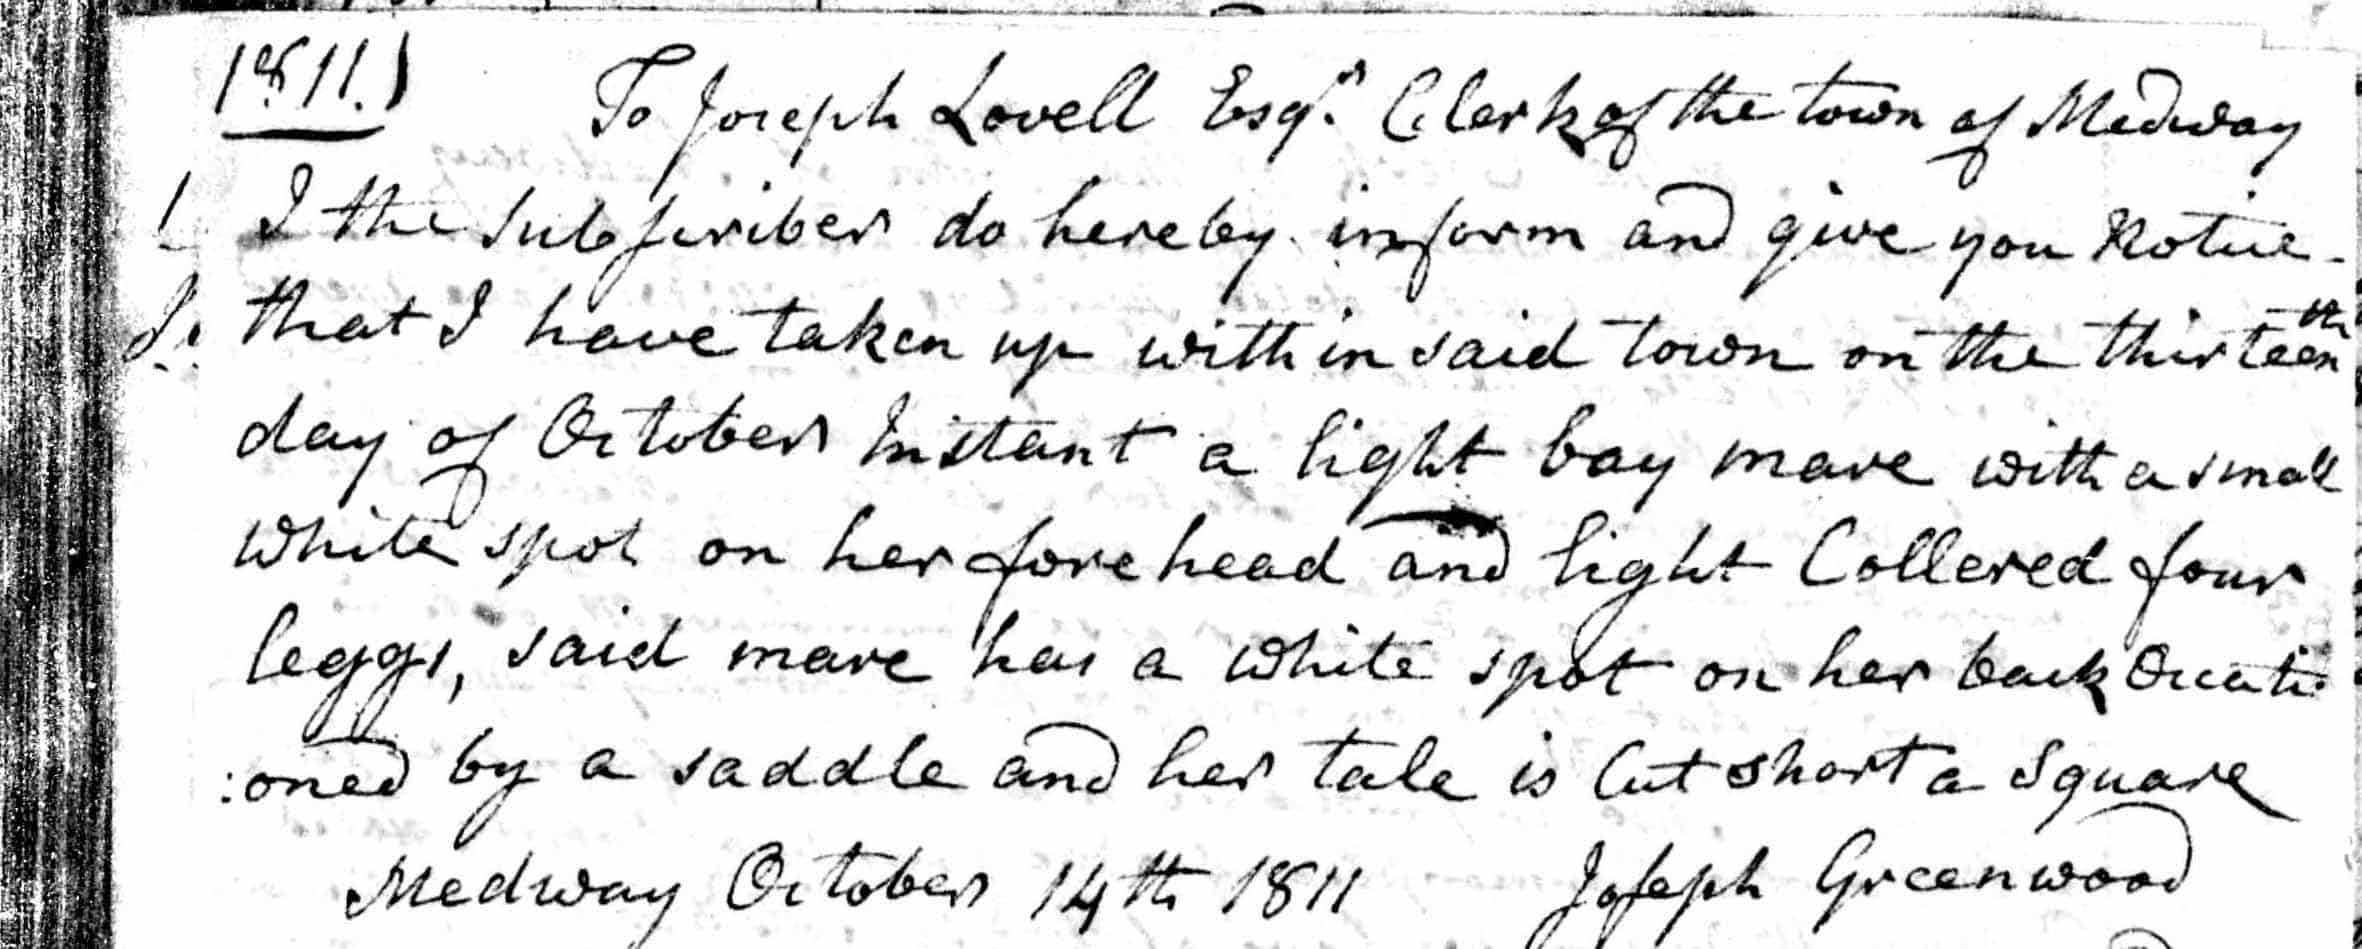 1811.)
To Joseph Lovell Esqr. Clerk of the town of Medway
I the Subscriber do hereby inform and give you Notice
that I have taken up within said town on the thirteenth
day of October Instant a light bay mare with a small
white spot on her forehead and light Collered four
leggs, said mare has a white spot on her back Occati
:oned by a saddle and her tale is Cut short a Square
Medway October 14th 1811 Joseph Greenwood